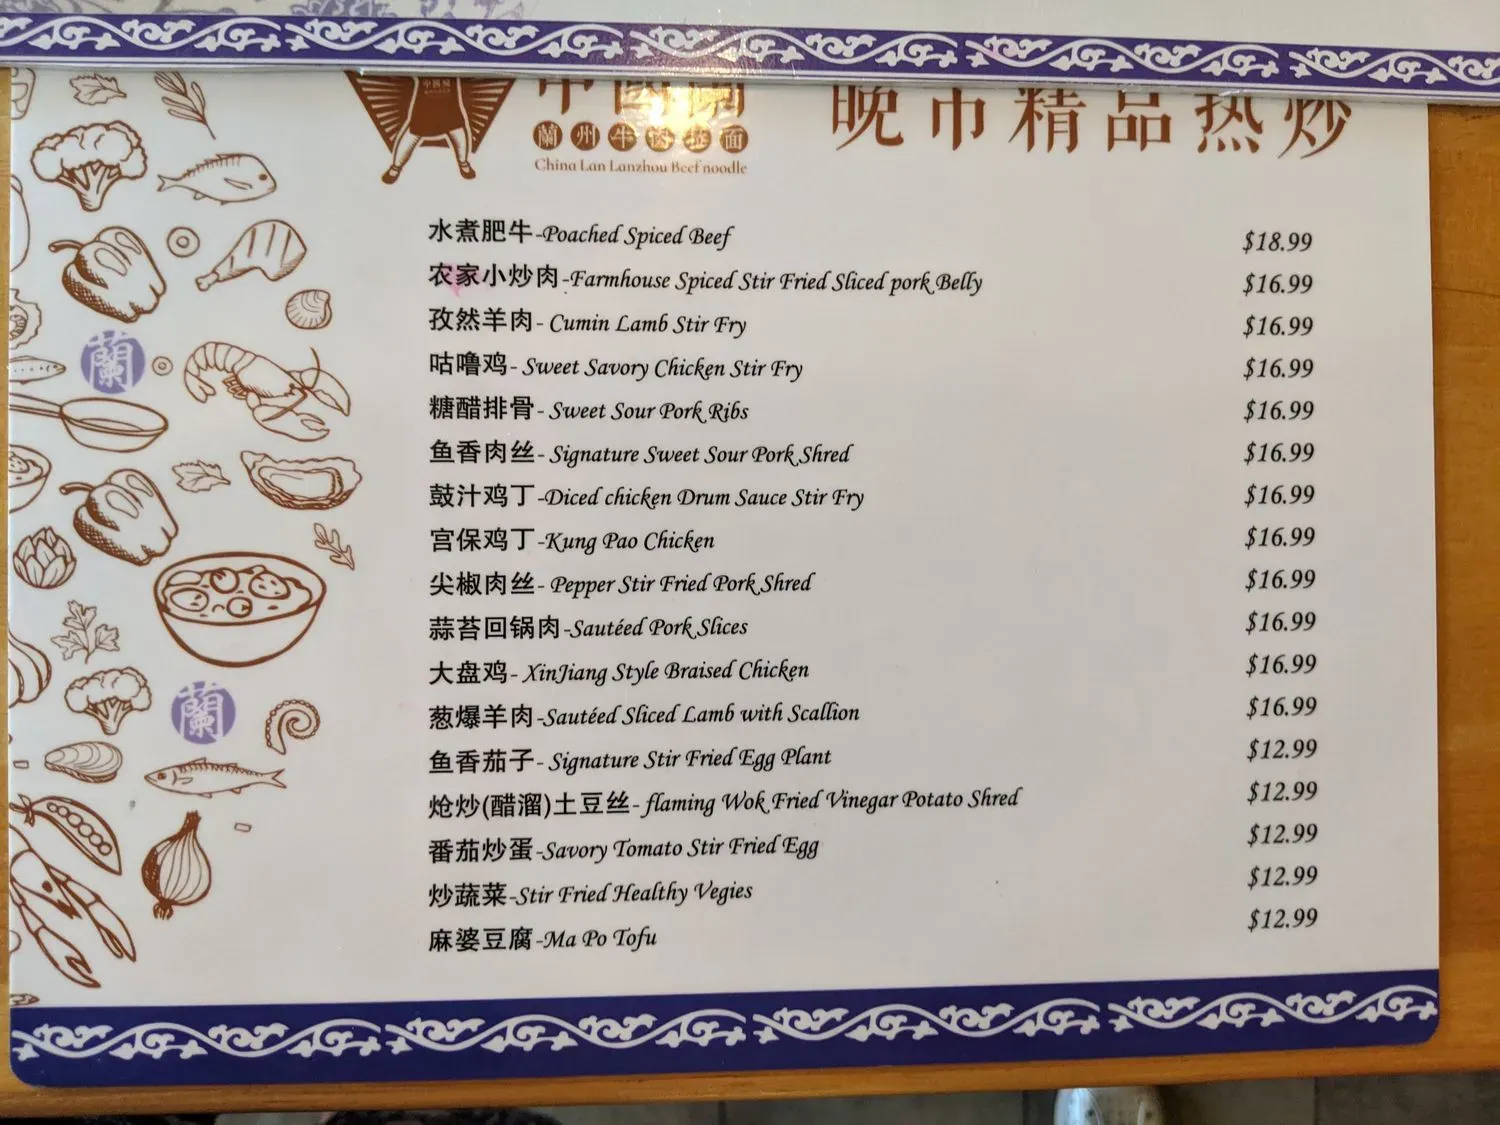 中國蘭
蘭州牛肉拉面
China Lan Lanzhou Beef noodle
晚市精品热炒
水煮肥牛-Poached Spiced Beef $18.99
农家小炒肉-Farmhouse Spiced Stir Fried Sliced pork Belly $16.99
孜然羊肉- Cumin Lamb Stir Fry $16.99
咕噜鸡- Sweet Savory Chicken Stir Fry $16.99
糖醋排骨- Sweet Sour Pork Ribs $16.99
鱼香肉丝- Signature Sweet Sour Pork Shred $16.99
鼓汁鸡丁-Diced chicken Drum Sauce Stir Fry $16.99
宫保鸡丁-Kung Pao Chicken $16.99
尖椒肉丝- Pepper Stir Fried Pork Shred $16.99
蒜苔回锅肉-Sautéed Pork Slices $16.99
大盘鸡- XinJiang Style Braised Chicken $16.99
葱爆羊肉-Sautéed Sliced Lamb with Scallion $16.99
鱼香茄子- Signature Stir Fried Egg Plant $12.99
炝炒(醋溜)土豆丝- flaming Wok Fried Vinegar Potato Shred $12.99
番茄炒蛋-Savory Tomato Stir Fried Egg $12.99
炒蔬菜-Stir Fried Healthy Vegies $12.99
麻婆豆腐-Ma Po Tofu $12.99
蘭
蘭